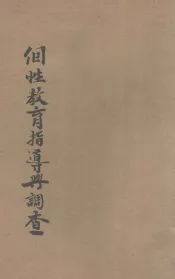 個性教育指導與調查